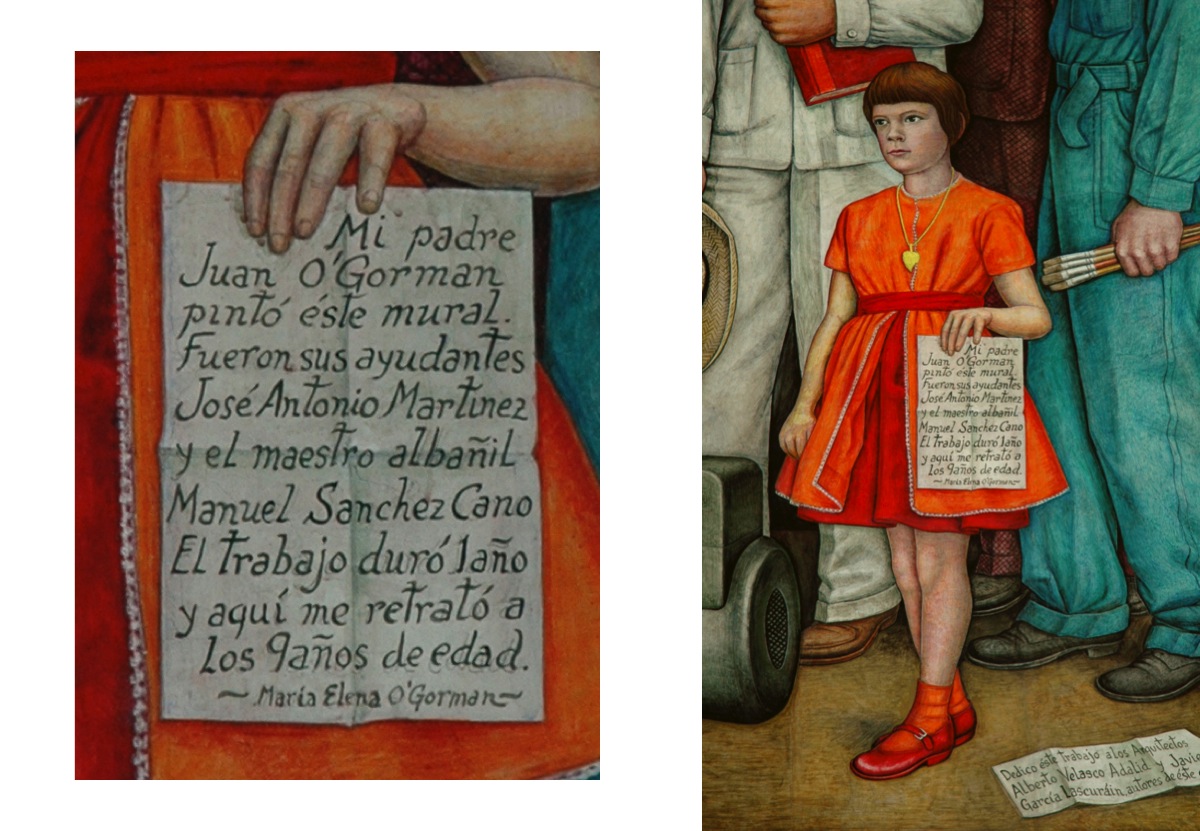 Mi padre
Juan O'Gorman
pintó éste mural.
Fueron sus ayudantes
José Antonio Martinez
y el maestro albañil
Manuel Sanchez Cano
El trabajo duró 1año
y aquí me retrató a
los 9años de edad.
~ María Elena O'Gorman ~
Mi padre
Juan O'Gorman
pintó éste mural.
Fueron sus ayudantes
José Antonio Martinez
y el maestro albañil
Manuel Sanchez Cano
El trabajo duró 1año
y aquí me retrató a
los 9años de edad.
~ María Elena O'Gorman ~
Dedico éste trabajo a los Arquitectos
Alberto Velasco Adalid y Javie
García Lascuráin, autores de éste